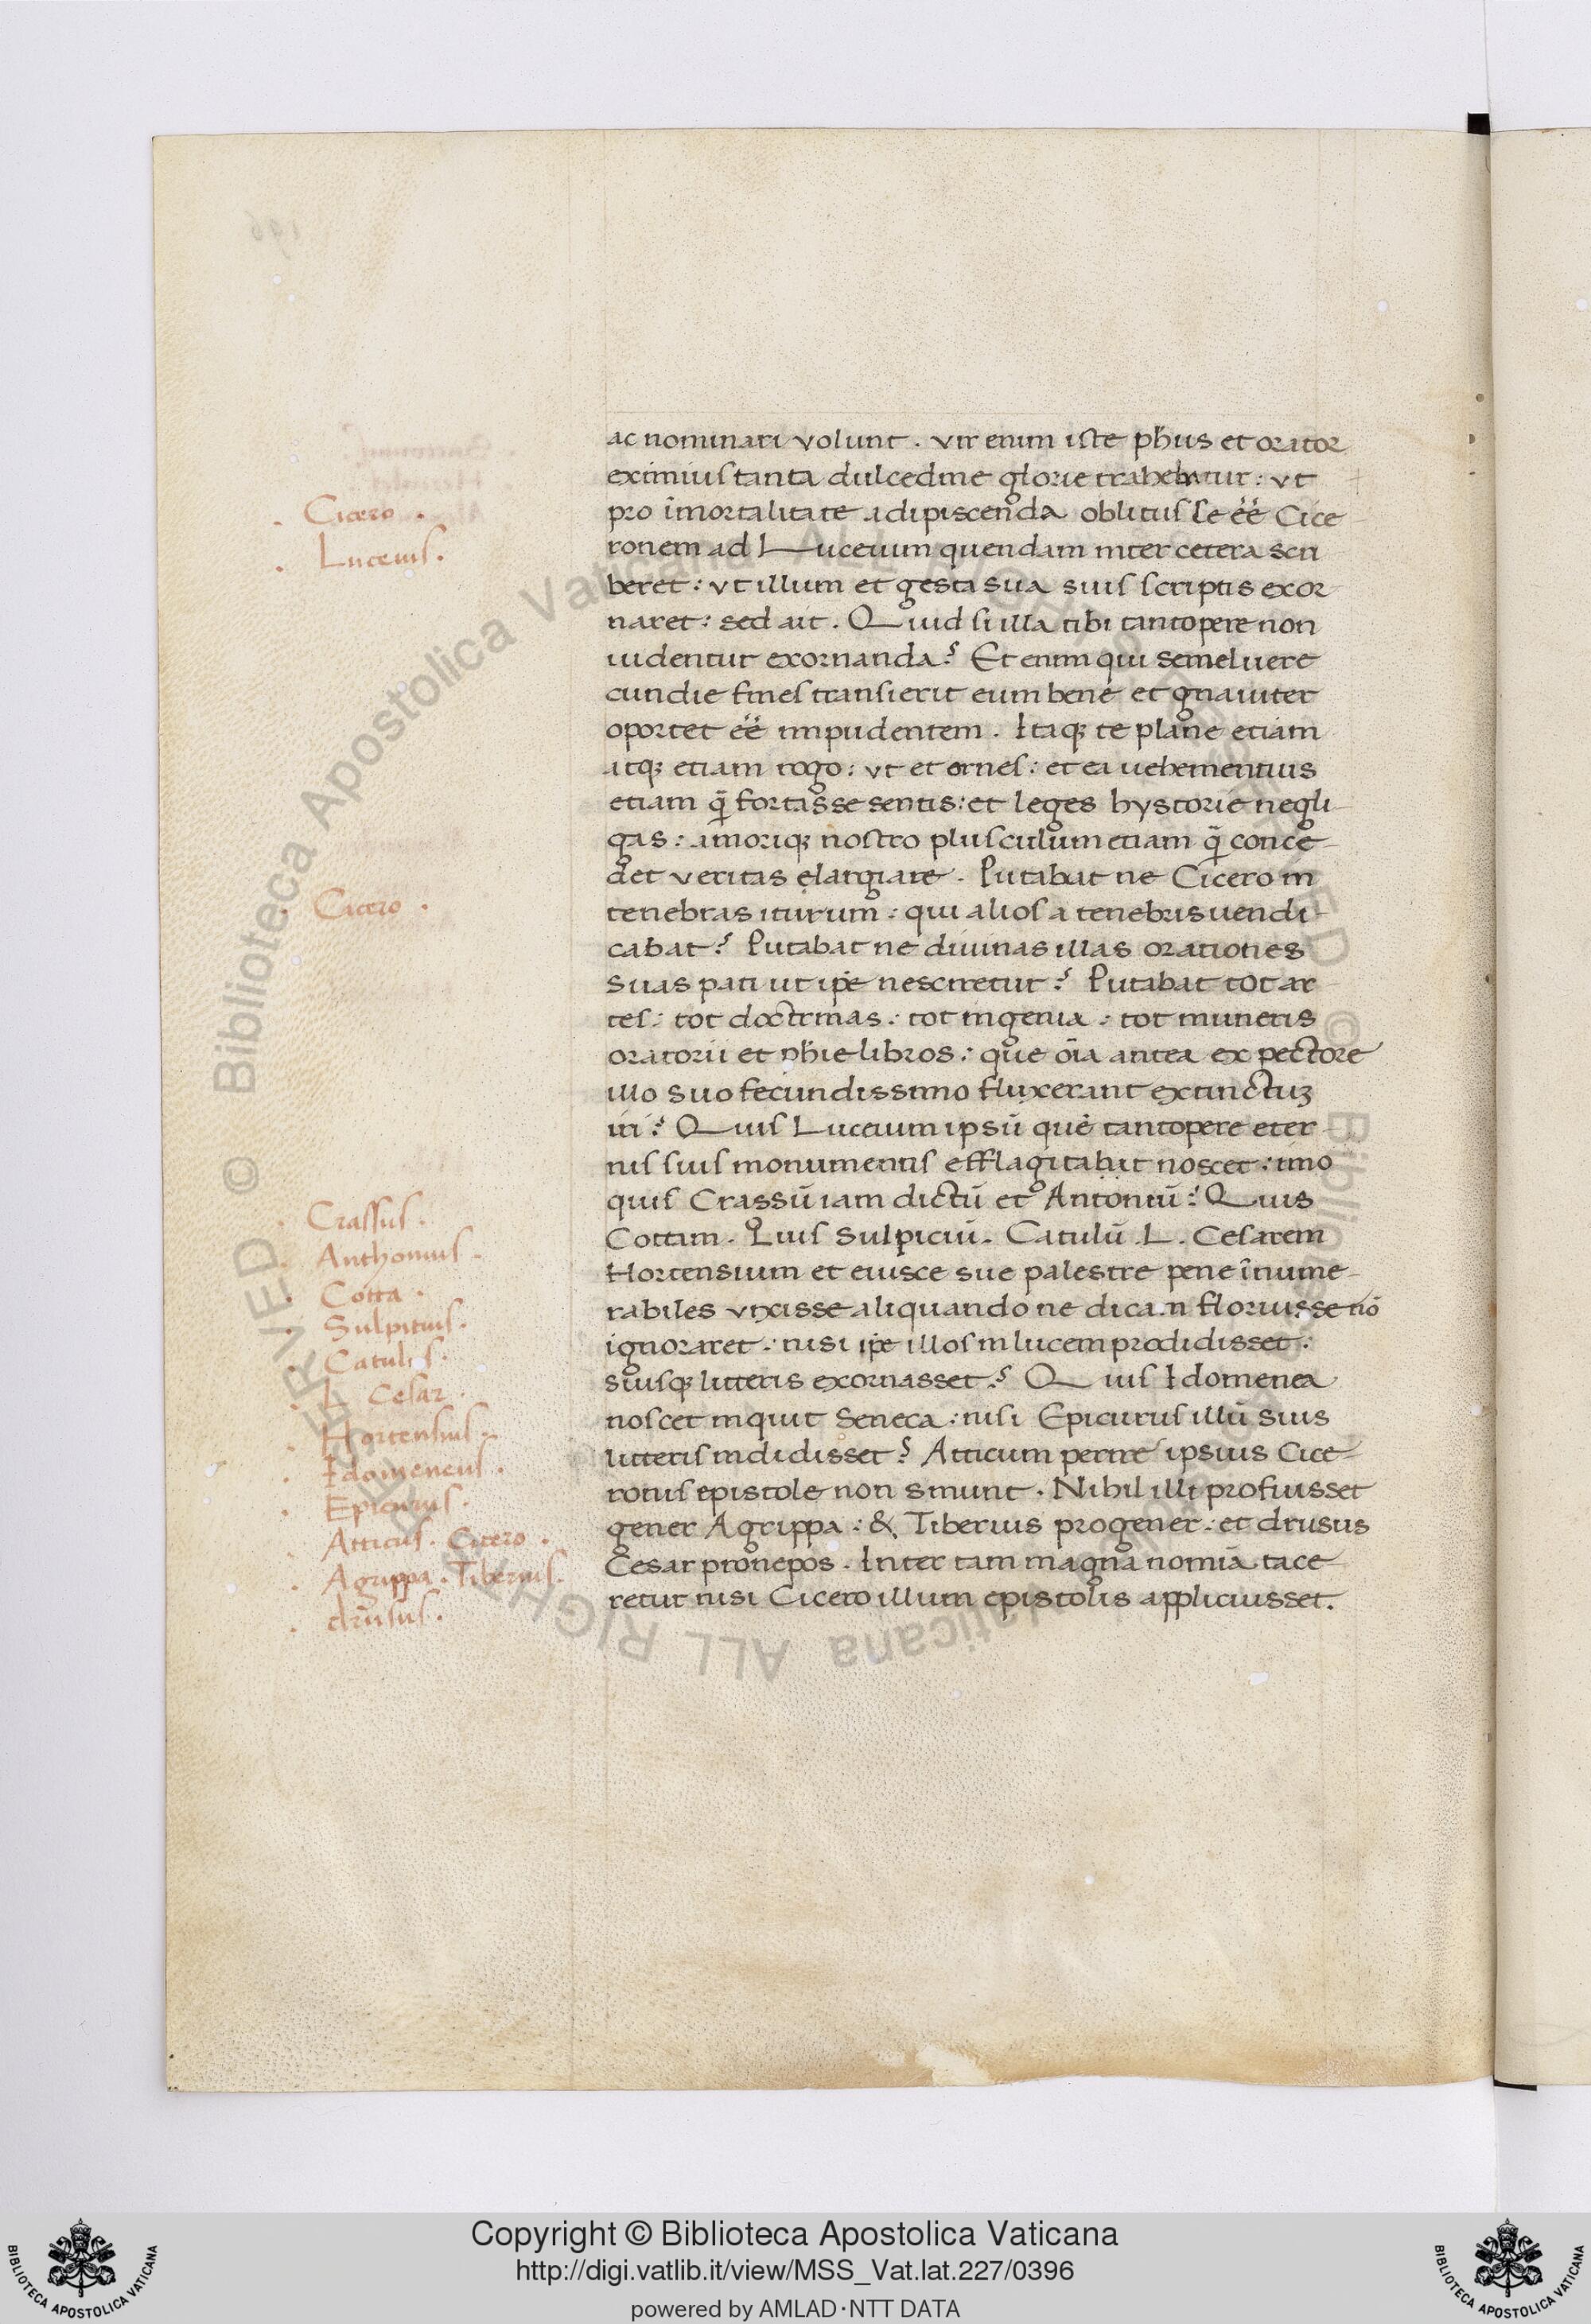 ac nominari volunt . vir enim iste phus et orator
eximius tanta dulcedine glorie trahebatur : vt
pro īmortalitate adipiscenda oblitus se éé Cice
ronem ad Luceium quendam inter cetera scri
beret : vt illum et gesta sua suis scriptis exor
naret : sed ait . Quid si illa tibi tantopere non
uidentur exornanda ? Et enim qui semel uere
cundie fines transierit eum bene et gnauiter
oportet éé impudentem . Itaqꝫ te plane etiam
atqꝫ etiam rogo : vt et ornes : et ea uehementius
etiam q̄ fortasse sentis : et leges hystorie negli
gas : amoriqꝫ nostro plusculum etiam q̄ conce
det veritas elargiare . Putabat ne Cicero in
tenebras iturum : qui alios a tenebris uendi
cabat ? Putabat ne diuinas illas orationes
suas pati ut ipe nesciretur ? Putabat tot ar
tes : tot doctrinas : tot ingenia : tot muneris
oratorii et phie libros : que oīa antea ex pectore
illo suo fecundissimo fluxerant extinctuꝫ
iri ? Quis Luceium ipsū quē tantopere eter
nis suis monumentis efflagitabit noscet : imo
quis Crassū iam dictū et Antoniū ? Quis
Cottam . Quis Sulpiciū . Catulū . L . Cesarem
Hortensium et eiusce sue palestre pene īnume
rabiles vixisse aliquando ne dicam floruisse nō
ignoraret : nisi ipe illos in lucem prodidisset :
suisqꝫ litteris exornasset ? Quis Idomenea
noscet inquit Seneca : nisi Epicurus illū suis
litteris indidisset ? Atticum perire ipsius Cice
ronis epistole non sinunt . Nihil illi profuisset
gener Agrippa : & Tiberius progener : et drusus
Cesar pronepos . Inter tam magna nomīa tace
retur nisi Cicero illum epistolis applicuisset .
. Cicero .
. Luceius .
. Cicero .
. Crassus .
. Anthonius .
. Cotta .
. Sulpitius .
. Catulus .
. L Cesar .
. Hortensius .
. Idomeneus .
. Epicurus .
. Atticus . Cicero .
. Agrippa . Tiberius .
. drusus .
© Biblioteca Apostolica Vaticana ALL RIGHTS RESERVED © Biblioteca Apostolica Vaticana ALL RIGHTS RESERVED
Copyright © Biblioteca Apostolica Vaticana
http://digi.vatlib.it/view/MSS_Vat.lat.227/0396
powered by AMLAD·NTT DATA
BIBLIOTECA APOSTOLICA VATICANA
BIBLIOTECA APOSTOLICA VATICANA